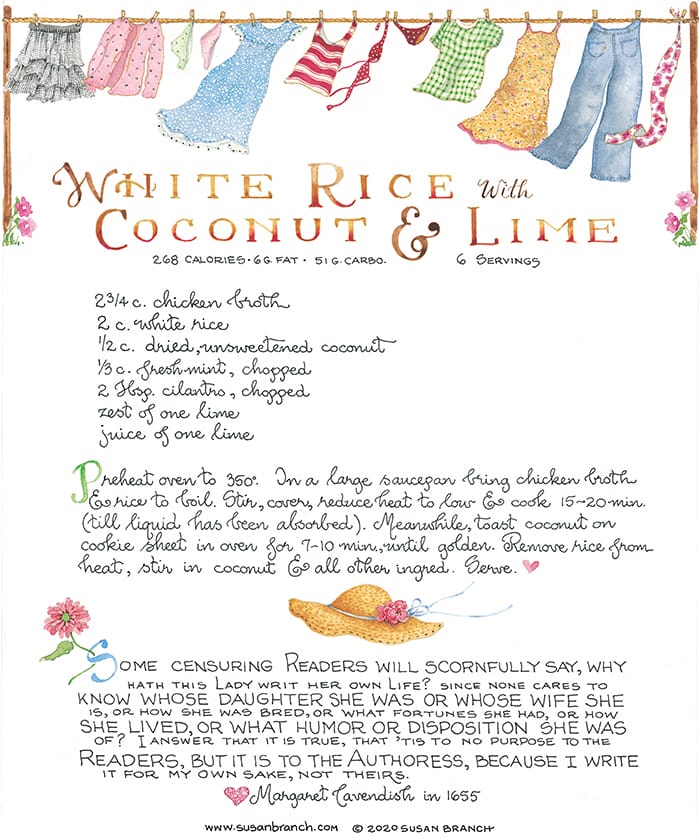 WHITE RICE With
COCONUT & LIME
268 CALORIES · 6 G. FAT · 51 G. CARBO. 6 SERVINGS
2 3/4 c. chicken broth
2 c. white rice
1/2 c. dried, unsweetened coconut
1/3 c. fresh mint, chopped
2 Tbsp. cilantro, chopped
zest of one lime
juice of one lime
Preheat oven to 350°. In a large saucepan bring chicken broth
& rice to boil. Stir, cover, reduce heat to low & cook 15~20 min.
(till liquid has been absorbed). Meanwhile, toast coconut on
cookie sheet in oven for 7-10 min., until golden. Remove rice from
heat, stir in coconut & all other ingred. Serve.
SOME CENSURING READERS WILL SCORNFULLY SAY, WHY
HATH THIS LADY WRIT HER OWN LIFE? SINCE NONE CARES TO
KNOW WHOSE DAUGHTER SHE WAS OR WHOSE WIFE SHE
IS, OR HOW SHE WAS BRED, OR WHAT FORTUNES SHE HAD, OR HOW
SHE LIVED, OR WHAT HUMOR OR DISPOSITION SHE WAS
OF? I ANSWER THAT IT IS TRUE, THAT 'TIS TO NO PURPOSE TO THE
READERS, BUT IT IS TO THE AUTHORESS, BECAUSE I WRITE
IT FOR MY OWN SAKE, NOT THEIRS.
Margaret Cavendish in 1655
www.susanbranch.com © 2020 SUSAN BRANCH